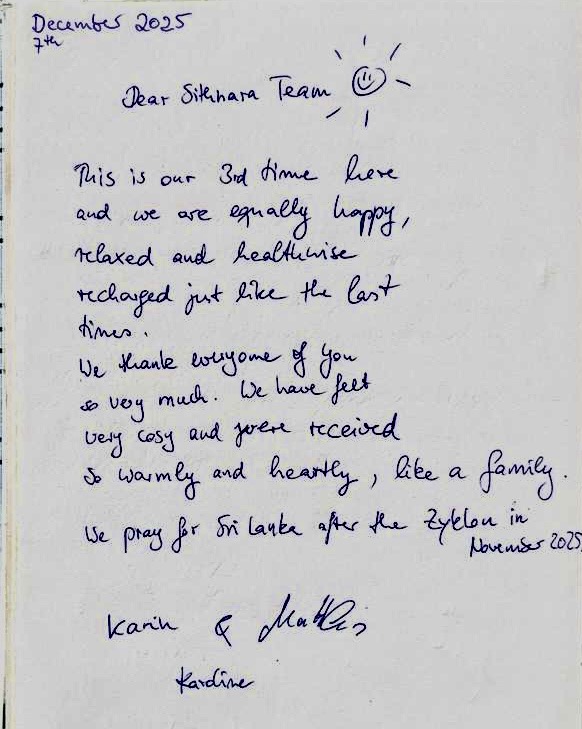 December 2025
7th
Dear Sithhara Team
This is our 3rd time here
and we are equally happy,
relaxed and healthwise
recharged just like the last
times.
We thank everyone of you
so very much. We have felt
very cosy and were received
so warmly and heartly, like a family.
We pray for Sri Lanka after the Zyklon in
November 2025
Karin & Matthis